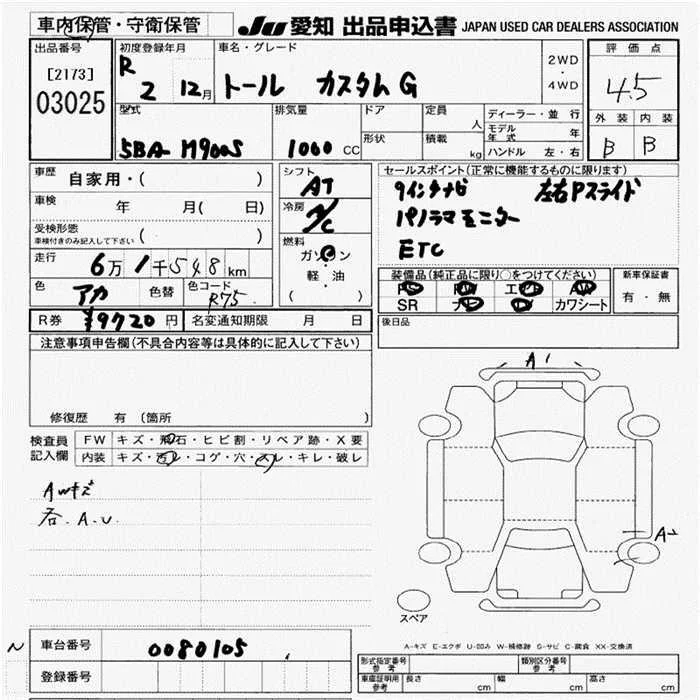 車内保管・守衛保管 JU 愛知 出品申込書 JAPAN USED CAR DEALERS ASSOCIATION
出品番号 初度登録年月 車名・グレード 評価点
[2173] R 2 12月 トール カスタムG 2WD・4WD 4.5
03025
型式 排気量 ドア 定員 人 ディーラー・並行 外装 内装
モデル年式 年
5BA-M900S 1000 CC 形状 積載 kg ハンドル 左・右 B B
車歴 自家用・( ) シフト AT セールスポイント(正常に機能するものに限ります)
車検 年 月( 日) 冷房 A/C 9インチナビ 左右Pスライド
受検形態 車検付きのみ記入して下さい ( ) パノラマモニター
走行 6万1千548km 燃料 ガソリン ETC
軽・油
( )
色 アカ 色替 色コード R75 装備品(純正品に限り○をつけてください) 新車保証書
PS PW エアB AW 有・無
SR ナビ TV カワシート
R券 ¥9720円 名変通知期限 月 日 後日品
注意事項申告欄(不具合内容等は具体的に記入して下さい)
修復歴 有(箇所
A1
検査員記入欄 FW キズ・飛石・ヒビ割・リペア跡・X要
内装 キズ・汚レ・コゲ・穴・スレ・キレ・破レ
AWキズ
各.A.U.
A2
スペア
A-キズ E-エクボ U-凹み W-補修跡 G-サビ C-腐食 XX-交換済
N 車台番号 0080105
登録番号
形式指定番号 参考 類別区分番号 参考
車庫証明用 参考 長さ cm 幅 cm 高さ cm